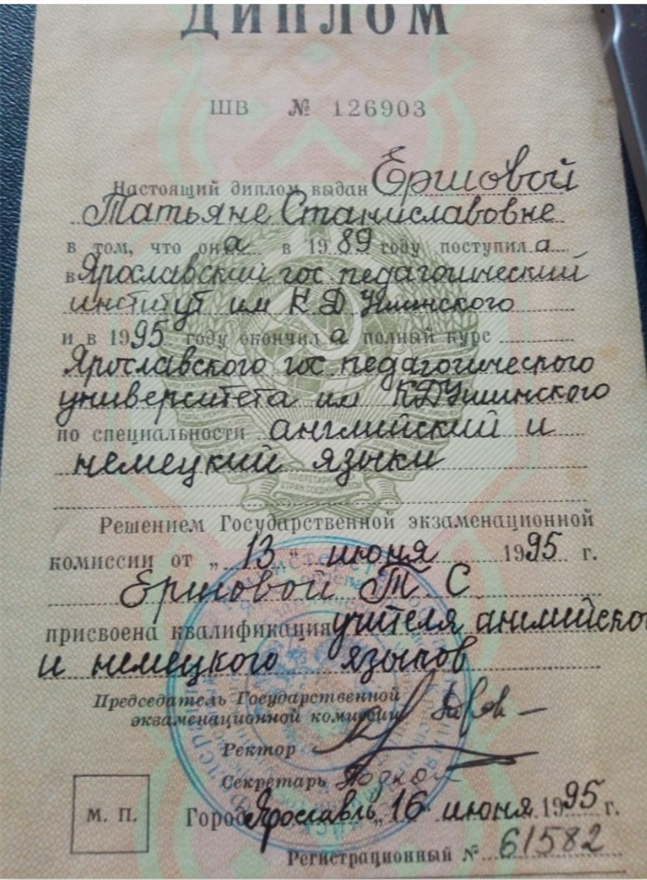 ДИПЛОМ
ШВ № 126903
Настоящий диплом выдан Ершовой
Татьяне Станиславовне
в том, что она в 1989 году поступила
в Ярославский гос педагогический
институт им К Д Ушинского
и в 1995 году окончила полный курс
Ярославского гос педагогического
университета им КДУшинского
по специальности английский и
немецкий языки
Решением Государственной экзаменационной
комиссии от „13“ июня 1995 г.
Ершовой Т С
присвоена квалификация учителя английско
и немецкого языков
Председатель Государственной
экзаменационной комиссии
Ректор
Секретарь
М. П.
Город Ярославль, 16 июня 1995 г.
Регистрационный № 61582